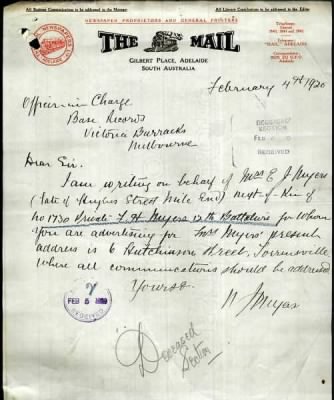 All Business Communications to be addressed to the Manager
All Literary Contributions to be addressed to the Editor
NEWSPAPER PROPRIETORS AND GENERAL PRINTERS
THE MAIL
GILBERT PLACE, ADELAIDE
SOUTH AUSTRALIA
February 4th 1920
Officer in Charge
Base Records
Victoria Barracks
Melbourne
DECEASED
SECTION
RECEIVED
Dear Sir,
I am writing on behalf of Mrs E J Myers
(late of Hughes Street Mile End) next of Kin
of No 1730 Private F H Myers 12th Battalion for Whom
You are advertising for Mrs Myers' present
address is 6 Hutchinson Street, Torrensville
Where all communications should be addressed
Yours &c
W J Myers
FEB 5 1920
RECEIVED
Deceased
Section